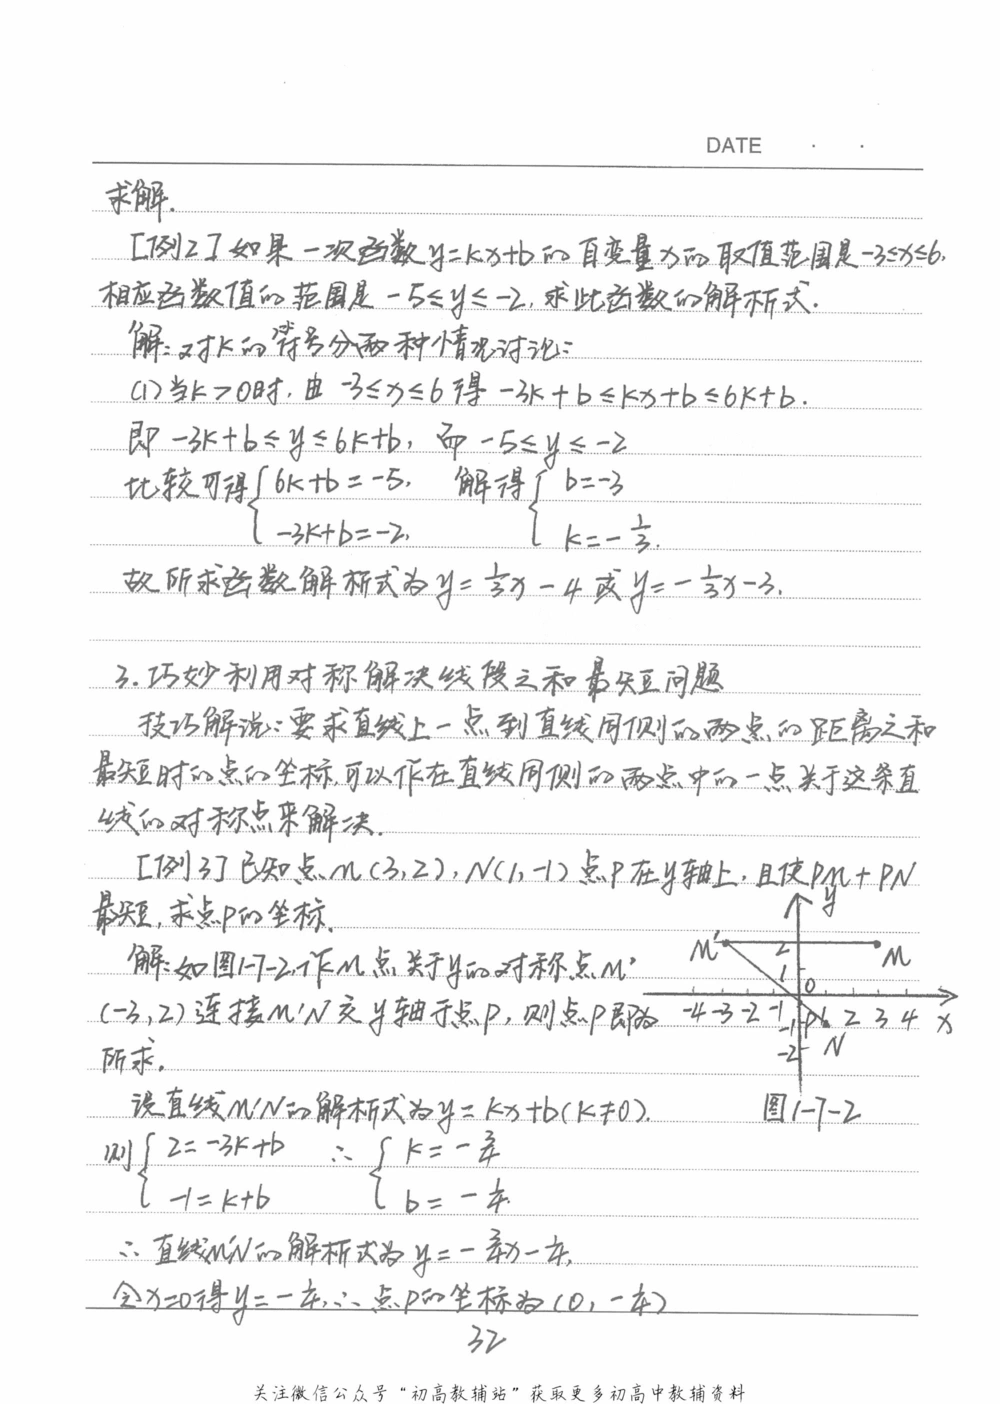 DATE · ·
求解.
[例2]如果一次函数y=kx+b的自变量x的取值范围是-3≤x≤6,
相应函数值的范围是-5≤y≤-2,求此函数的解析式.
解:对k的符号分两种情况讨论:
(1)当k>0时,由-3≤x≤6得-3k+b≤kx+b≤6k+b.
即-3k+b≤y≤6k+b,而-5≤y≤-2
比较可得{6k+b=-5, 解得{b=-3
-3k+b=-2, k=-1/3.
故所求函数解析式为y=1/3x-4或y=-1/3x-3.
3.巧妙利用对称解决线段之和最短问题
技巧解说:要求直线上一点到直线同侧的两点的距离之和
最短时的点的坐标,可以作在直线同侧的两点中的一点关于这条直
线的对称点来解决.
[例3]已知点M(3,2),N(1,-1)点P在y轴上,且使PM+PN
最短,求点P的坐标.
解:如图1-7-2,作M点关于y的对称点M'
(-3,2)连接M'N交y轴于点P,则点P即为
所求.
设直线M'N的解析式为y=kx+b(k≠0).
则{2=-3k+b ∴{k=-3/4
-1=k+b b=-1/4.
∴直线M'N的解析式为y=-3/4x-1/4,
令x=0得y=-1/4,∴点P的坐标为(0,-1/4)
y
M' 2 M
1
0
-4 -3 -2 -1 1 2 3 4 x
-1 P
N
-2
图1-7-2
32
关注微信公众号“初高教辅站”获取更多初高中教辅资料